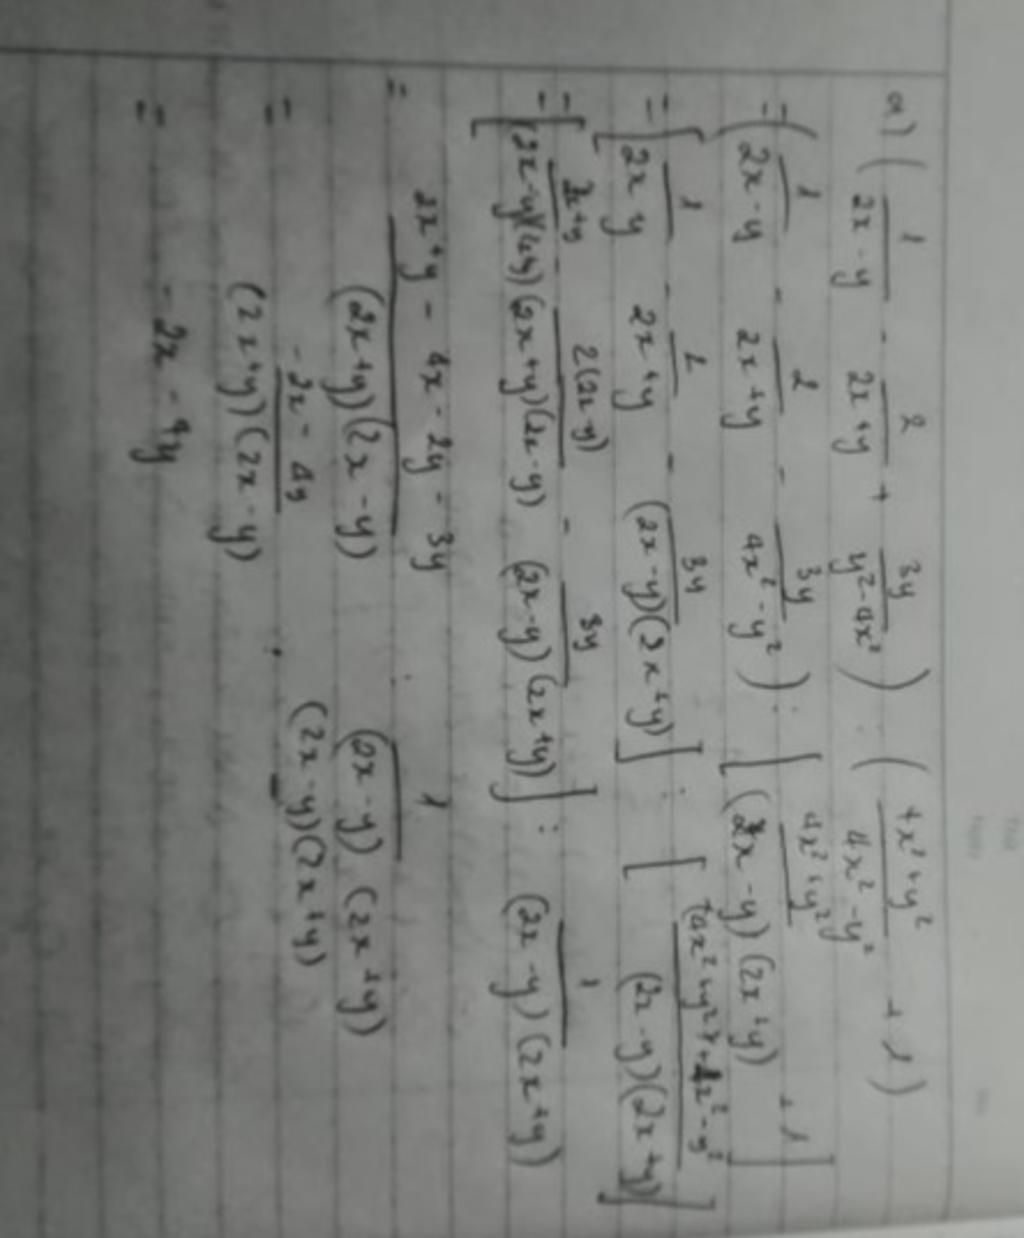 a) ( 1/(2x - y) - 2/(2x + y) + 3y/(y² - 4x²) ) : ( (4x² + y²)/(4x² - y²) + 1 )
= ( 1/(2x - y) - 2/(2x + y) - 3y/(4x² - y²) ) : [ (4x² + y²)/((2x - y)(2x + y)) + 1 ]
= [ 1/(2x y) - 2/(2x + y) - 3y/((2x - y)(2x + y)) ] : [ (4x² + y² + 4x² - y²)/((2x - y)(2x + y)) ]
= [ (2x + y)/((2x - y)(2x + y)) - 2(2x - y)/((2x + y)(2x - y)) - 3y/((2x - y)(2x + y)) ] : 1/((2x - y)(2x + y))
= (2x + y - 4x - 2y - 3y)/((2x + y)(2x - y)) : 1/((2x - y)(2x + y))
= (-2x - 4y)/((2x + y)(2x - y)) . (2x - y)(2x + y)
= - 2x - 4y